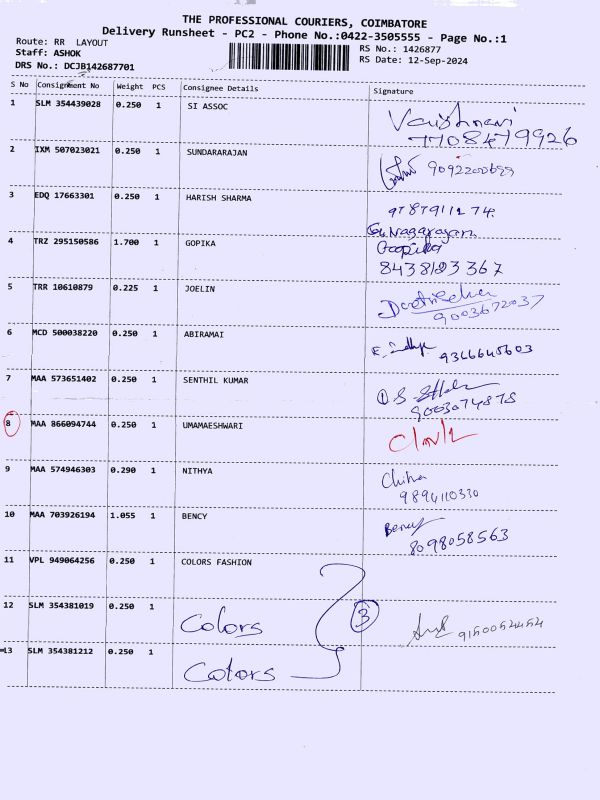 THE PROFESSIONAL COURIERS, COIMBATORE
Delivery Runsheet - PC2 - Phone No.:0422-3505555 - Page No.:1
Route: RR LAYOUT
Staff: ASHOK
DRS No.: DCJB142687701
RS No.: 1426877
RS Date: 12-Sep-2024
S No Consignment No Weight PCS Consignee Details Signature
1 SLM 354439028 0.250 1 SI ASSOC Vaishnavi
7708479926
2 IXM 507023021 0.250 1 SUNDARARAJAN
3 EDQ 17663301 0.250 1 HARISH SHARMA
4 TRZ 295150586 1.700 1 GOPIKA Gopika
8438183367
5 TRR 10610879 0.225 1 JOELIN
9003672037
6 MCD 500038220 0.250 1 ABIRAMAI 9366645603
7 MAA 573651402 0.250 1 SENTHIL KUMAR
9003074875
8 MAA 866094744 0.250 1 UMAMAESHWARI
9 MAA 574946303 0.290 1 NITHYA Chitra
9894110330
10 MAA 703926194 1.055 1 BENCY Bency
8098058563
11 VPL 949064256 0.250 1 COLORS FASHION
12 SLM 354381019 0.250 1 Colors 3 9150052454
13 SLM 354381212 0.250 1 Colors